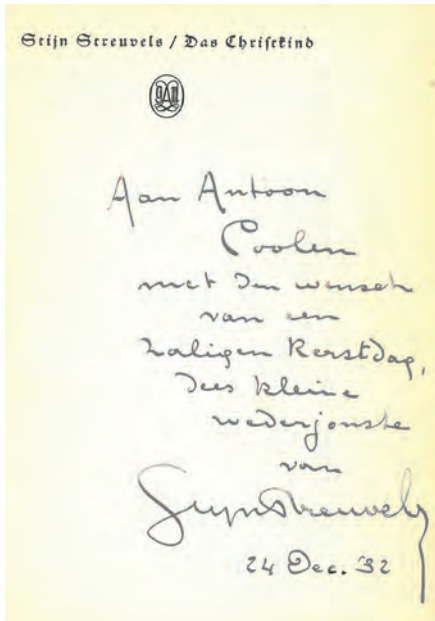 Stijn Streuvels / Das Christkind
Aan Antoon
Coolen
met den wensch
van een
zaligen Kerstdag,
dees kleine
wederjonste
van
Stijn Streuvels
24 Dec. '32